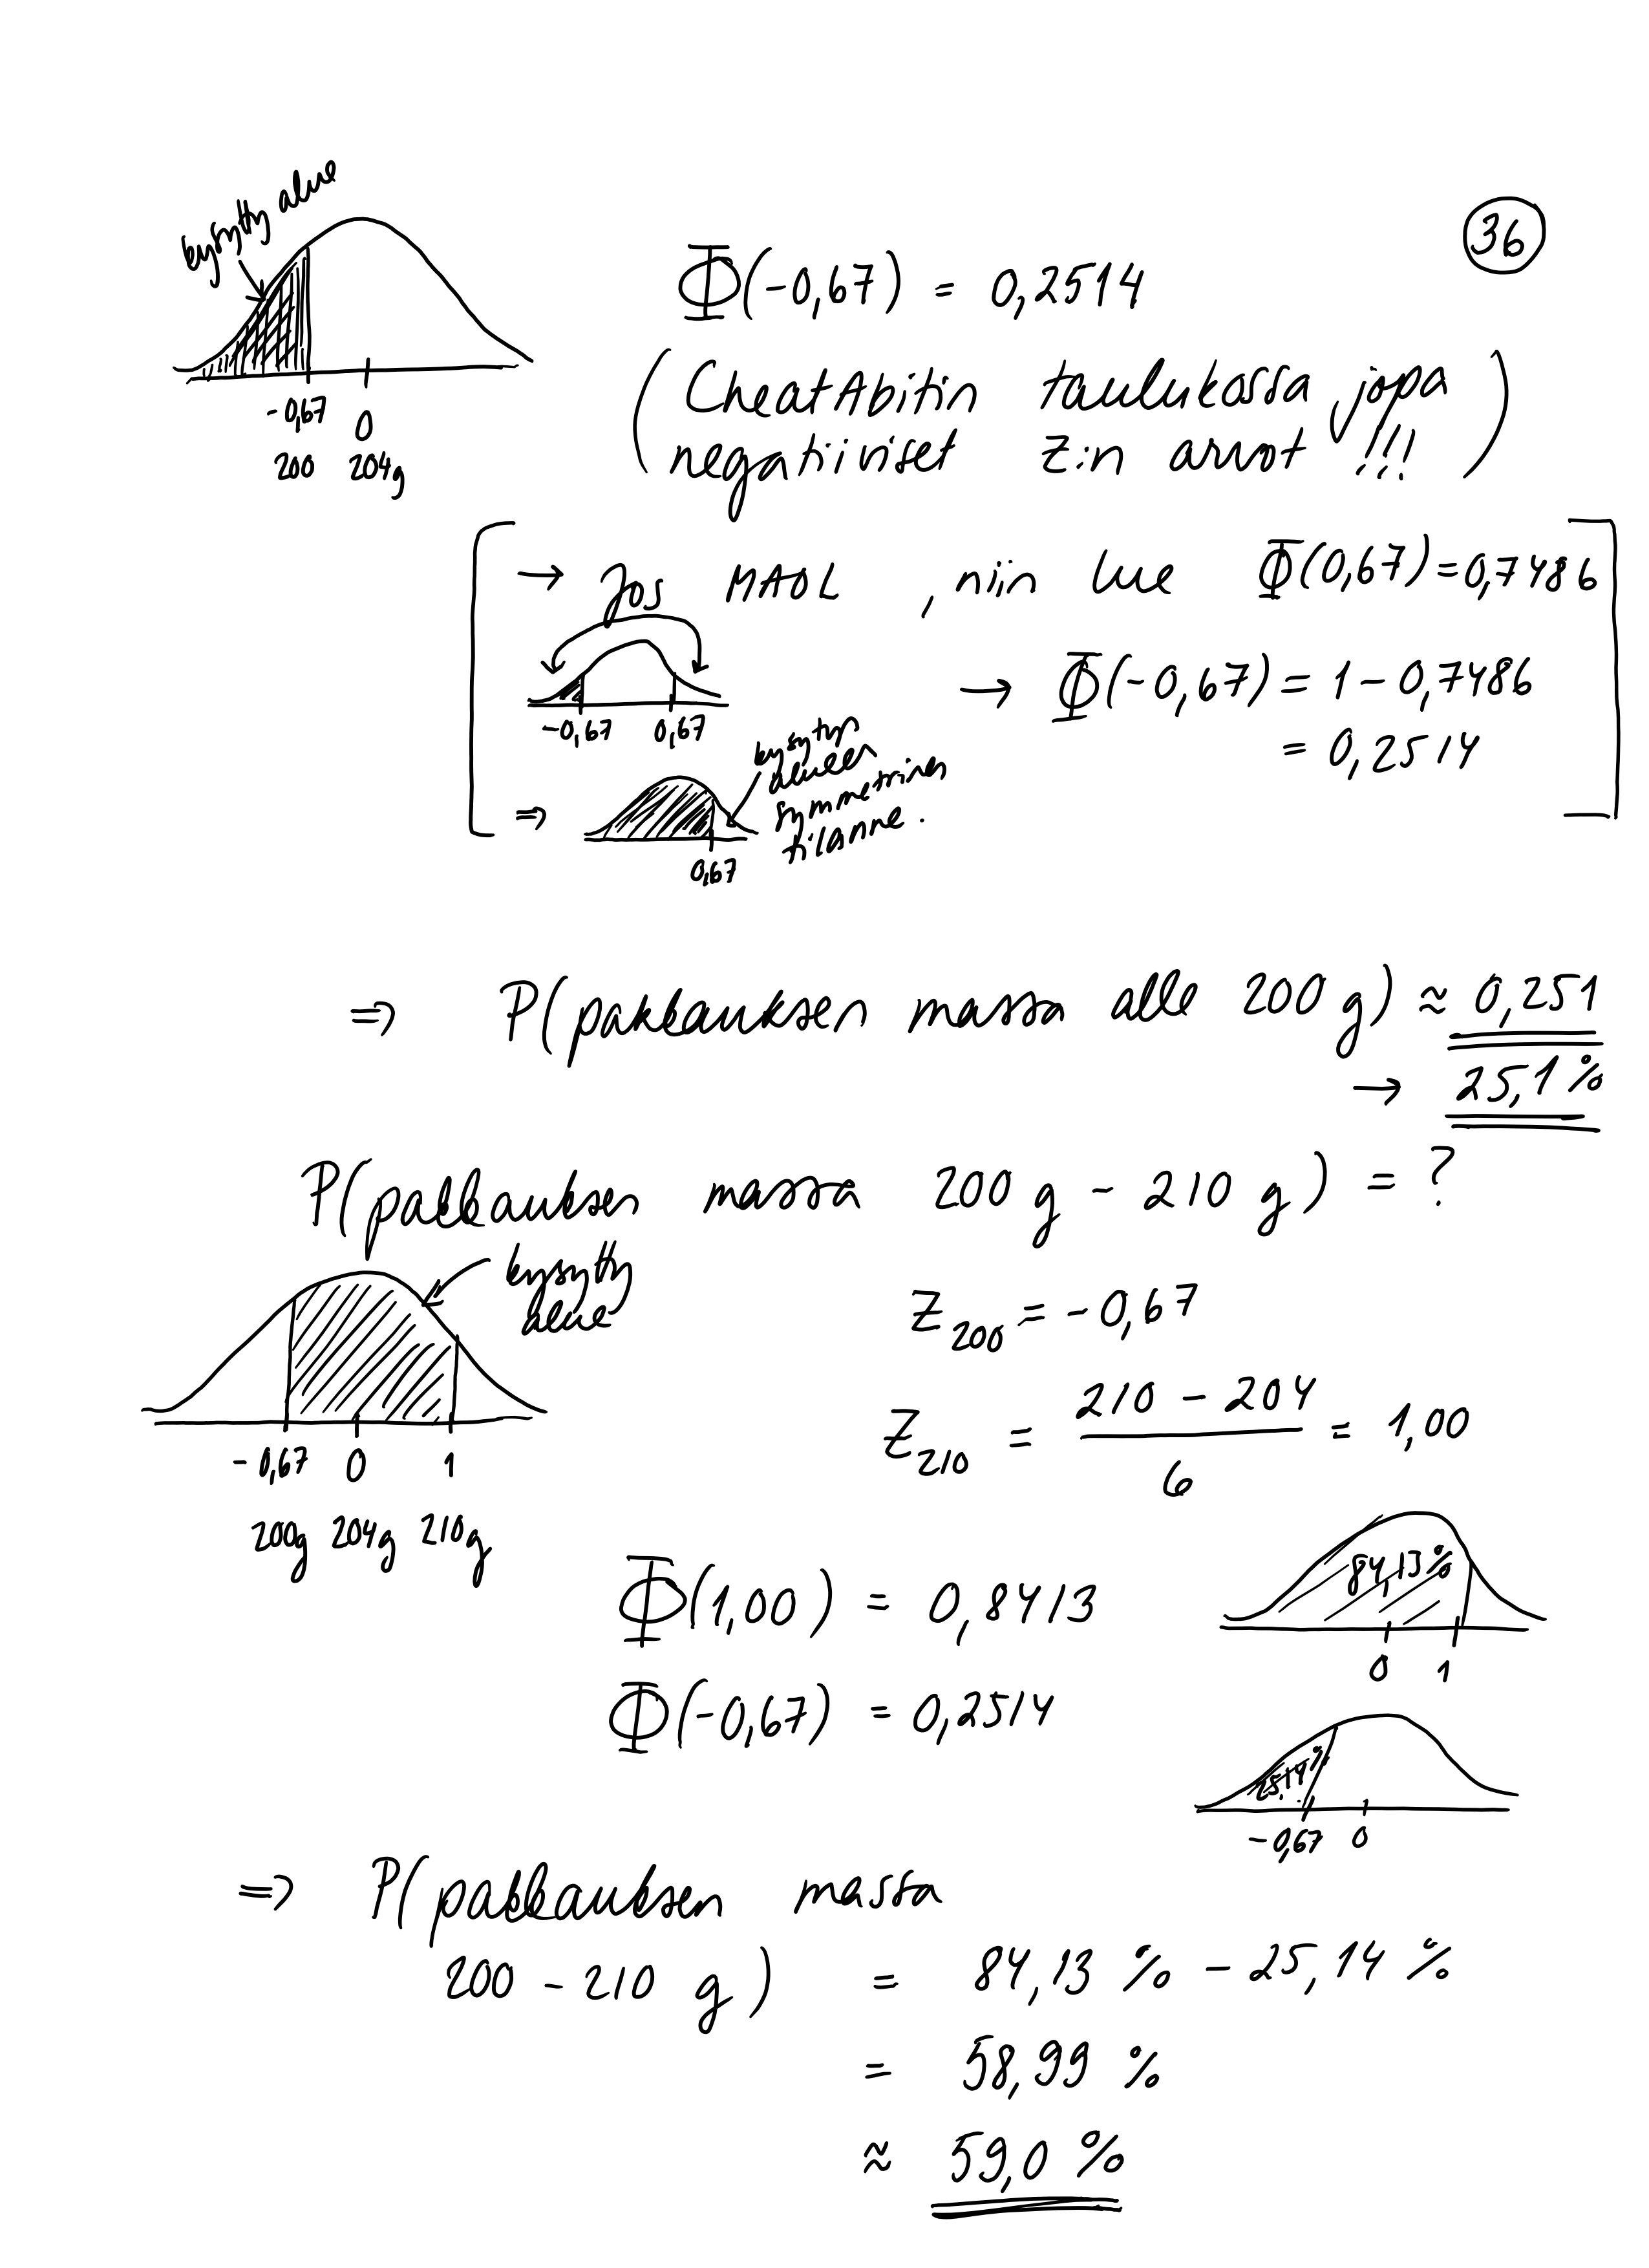 36
kysytty alue
-0,67 0
200 204g
Φ(-0,67) = 0,2514
(CheatAbitin taulukossa jopa
negatiiviset z:n arvot !!!)
→ Jos MAOL, niin lue Φ(0,67) = 0,7486
-0,67 0,67
→ Φ(-0,67) = 1 - 0,7486
= 0,2514
⇒
0,67
kysytyn
alueen
symmetrinen
tilanne.
⇒ P(pakkauksen massa alle 200 g) ≈ 0,251
→ 25,1 %
P(pakkauksen massa 200 g - 210 g) = ?
kysytty
alue
-0,67 0 1
200g 204g 210g
z200 = -0,67
z210 = 210 - 204 / 6 = 1,00
Φ(1,00) = 0,8413
84,13 %
0 1
Φ(-0,67) = 0,2514
25,14 %
-0,67 0
⇒ P(pakkauksen massa
200 - 210 g) = 84,13 % - 25,14 %
= 58,99 %
≈ 59,0 %